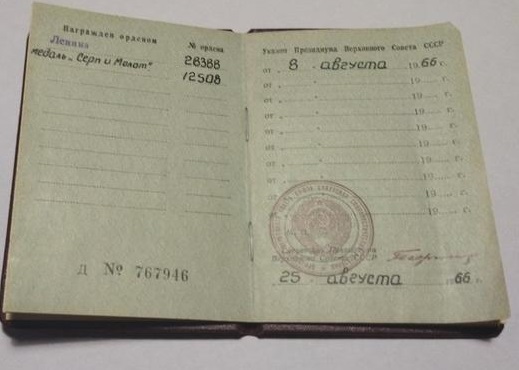 Награжден орденом
Ленина
№ ордена
28388
медаль „Серп и Молот"
12508
Д № 767946
Указом Президиума Верховного Совета СССР
от „ 8 „ августа 1966 г.
от „ „ 19 г.
от „ „ 19 г.
от „ „ 19 г.
от „ „ 19 г.
от „ „ 19 г.
от „ „ 19 г.
от „ „ 19 г.
19 г.
Секретарь Президиума
Верховного Совета СССР
25 августа 1966 г.